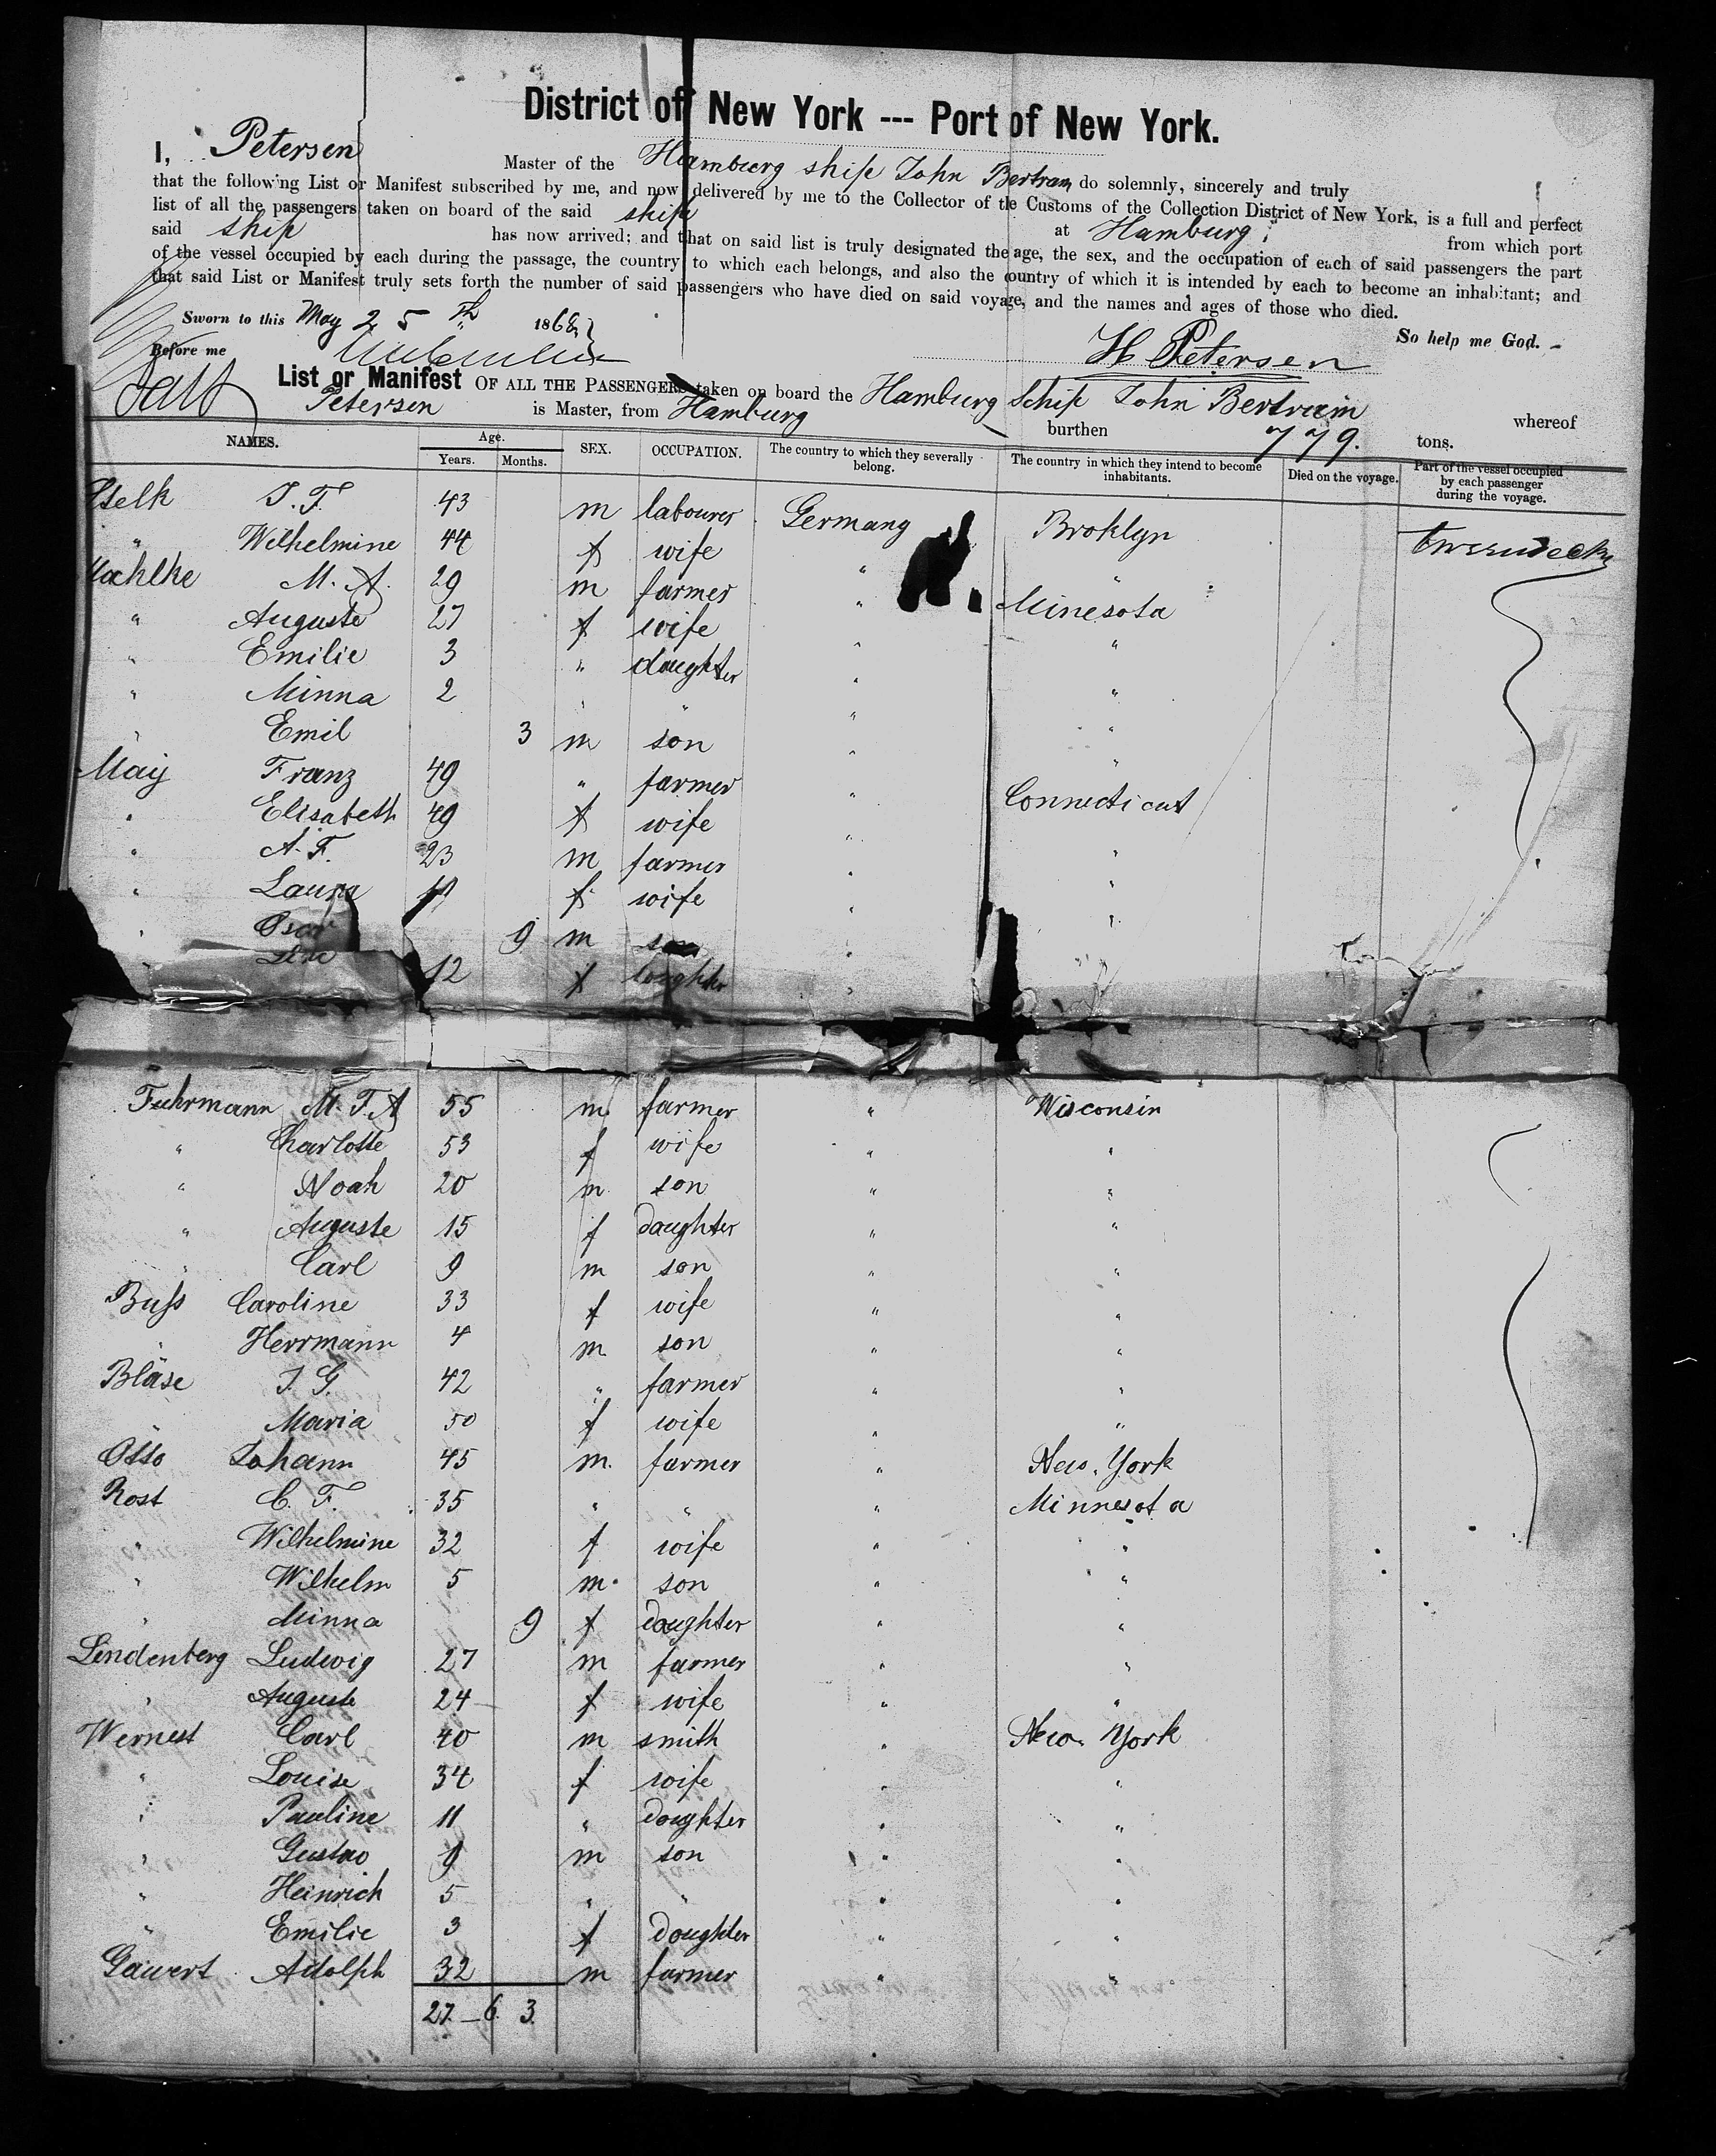 District of New York --- Port of New York.
I, Petersen Master of the Hamburg ship John Bertram do solemnly, sincerely and truly
that the following List or Manifest subscribed by me, and now delivered by me to the Collector of the Customs of the Collection District of New York, is a full and perfect
list of all the passengers taken on board of the said ship at Hamburg, from which port
said ship has now arrived; and that on said list is truly designated the age, the sex, and the occupation of each of said passengers the part
of the vessel occupied by each during the passage, the country to which each belongs, and also the country of which it is intended by each to become an inhabitant; and
that said List or Manifest truly sets forth the number of said passengers who have died on said voyage, and the names and ages of those who died.
So help me God.
Sworn to this May 25th 1868
H Petersen
Before me
List or Manifest OF ALL THE PASSENGERS taken on board the Hamburg Schip John Bertram whereof
Petersen is Master, from Hamburg burthen 779. tons.
NAMES. Age. Years. Months. SEX. OCCUPATION. The country to which they severally belong. The country in which they intend to become inhabitants. Died on the voyage. Part of the vessel occupied by each passenger during the voyage.
J. F. 43 m labourer Germany Broklyn
" Wilhelmine 44 f wife " "
M. A. 29 m farmer " Minesota
" Auguste 27 f wife " "
" Emilie 3 " daughter " "
" Minna 2 " " " "
" Emil 3 m son " "
May Franz 49 " farmer " Connecticut
" Elisabeth 49 f wife " "
" A. F. 23 m farmer " "
" Laura f wife " "
" Oscar 9 m son "
" 12 f daughter "
Fuhrmann M. F. A 55 m farmer " Wisconsin
" Charlotte 53 f wife " "
" Noah 20 m son " "
" Auguste 15 f daughter " "
" Carl 9 m son " "
Buſs Caroline 33 f wife " "
" Herrmann 4 m son " "
Bläse J. G. 42 " farmer " "
" Maria 50 f wife " "
Otto Johann 45 m. farmer " New. York
Rost C. F. 35 " " " Minnesota
" Wilhelmine 32 f wife " "
" Wilhelm 5 m. son " "
" Minna 9 f daughter " "
Lindenberg Ludwig 27 m farmer " "
" Auguste 24 f wife " "
Wernest Carl 40 m smith " New York
" Louise 34 f wife " "
" Pauline 11 " daughter " "
" Gustav 9 m son " "
" Heinrich 5 " " " "
" Emilie 3 f daughter " "
Gäwert Adolph 32 m farmer " "
27.—6. 3.